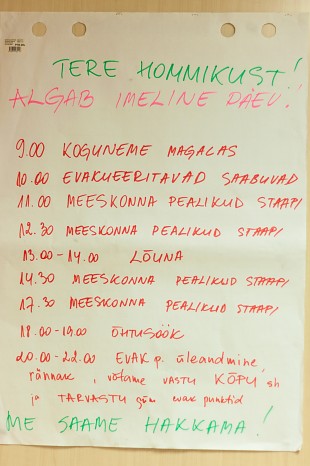 TERE HOMMIKUST!
ALGAB IMELINE PÄEV!
9.00 KOGUNEME MAGALAS
10.00 EVAKUEERITAVAD SAABUVAD
11.00 MEESKONNA PEALIKUD STAAPI
12.30 MEESKONNA PEALIKUD STAAPI
13.00-14.00 LÕUNA
14.30 MEESKONNA PEALIKUD STAAPI
17.30 MEESKONNA PEALIKUD STAAPI
18.00-19.00 ÕHTUSÖÖK
20.00-22.00 EVAK p. üleandmine,
rännak, võtame vastu KÕPU sh
ja TARVASTU güm evak punktid
ME SAAME HAKKAMA!